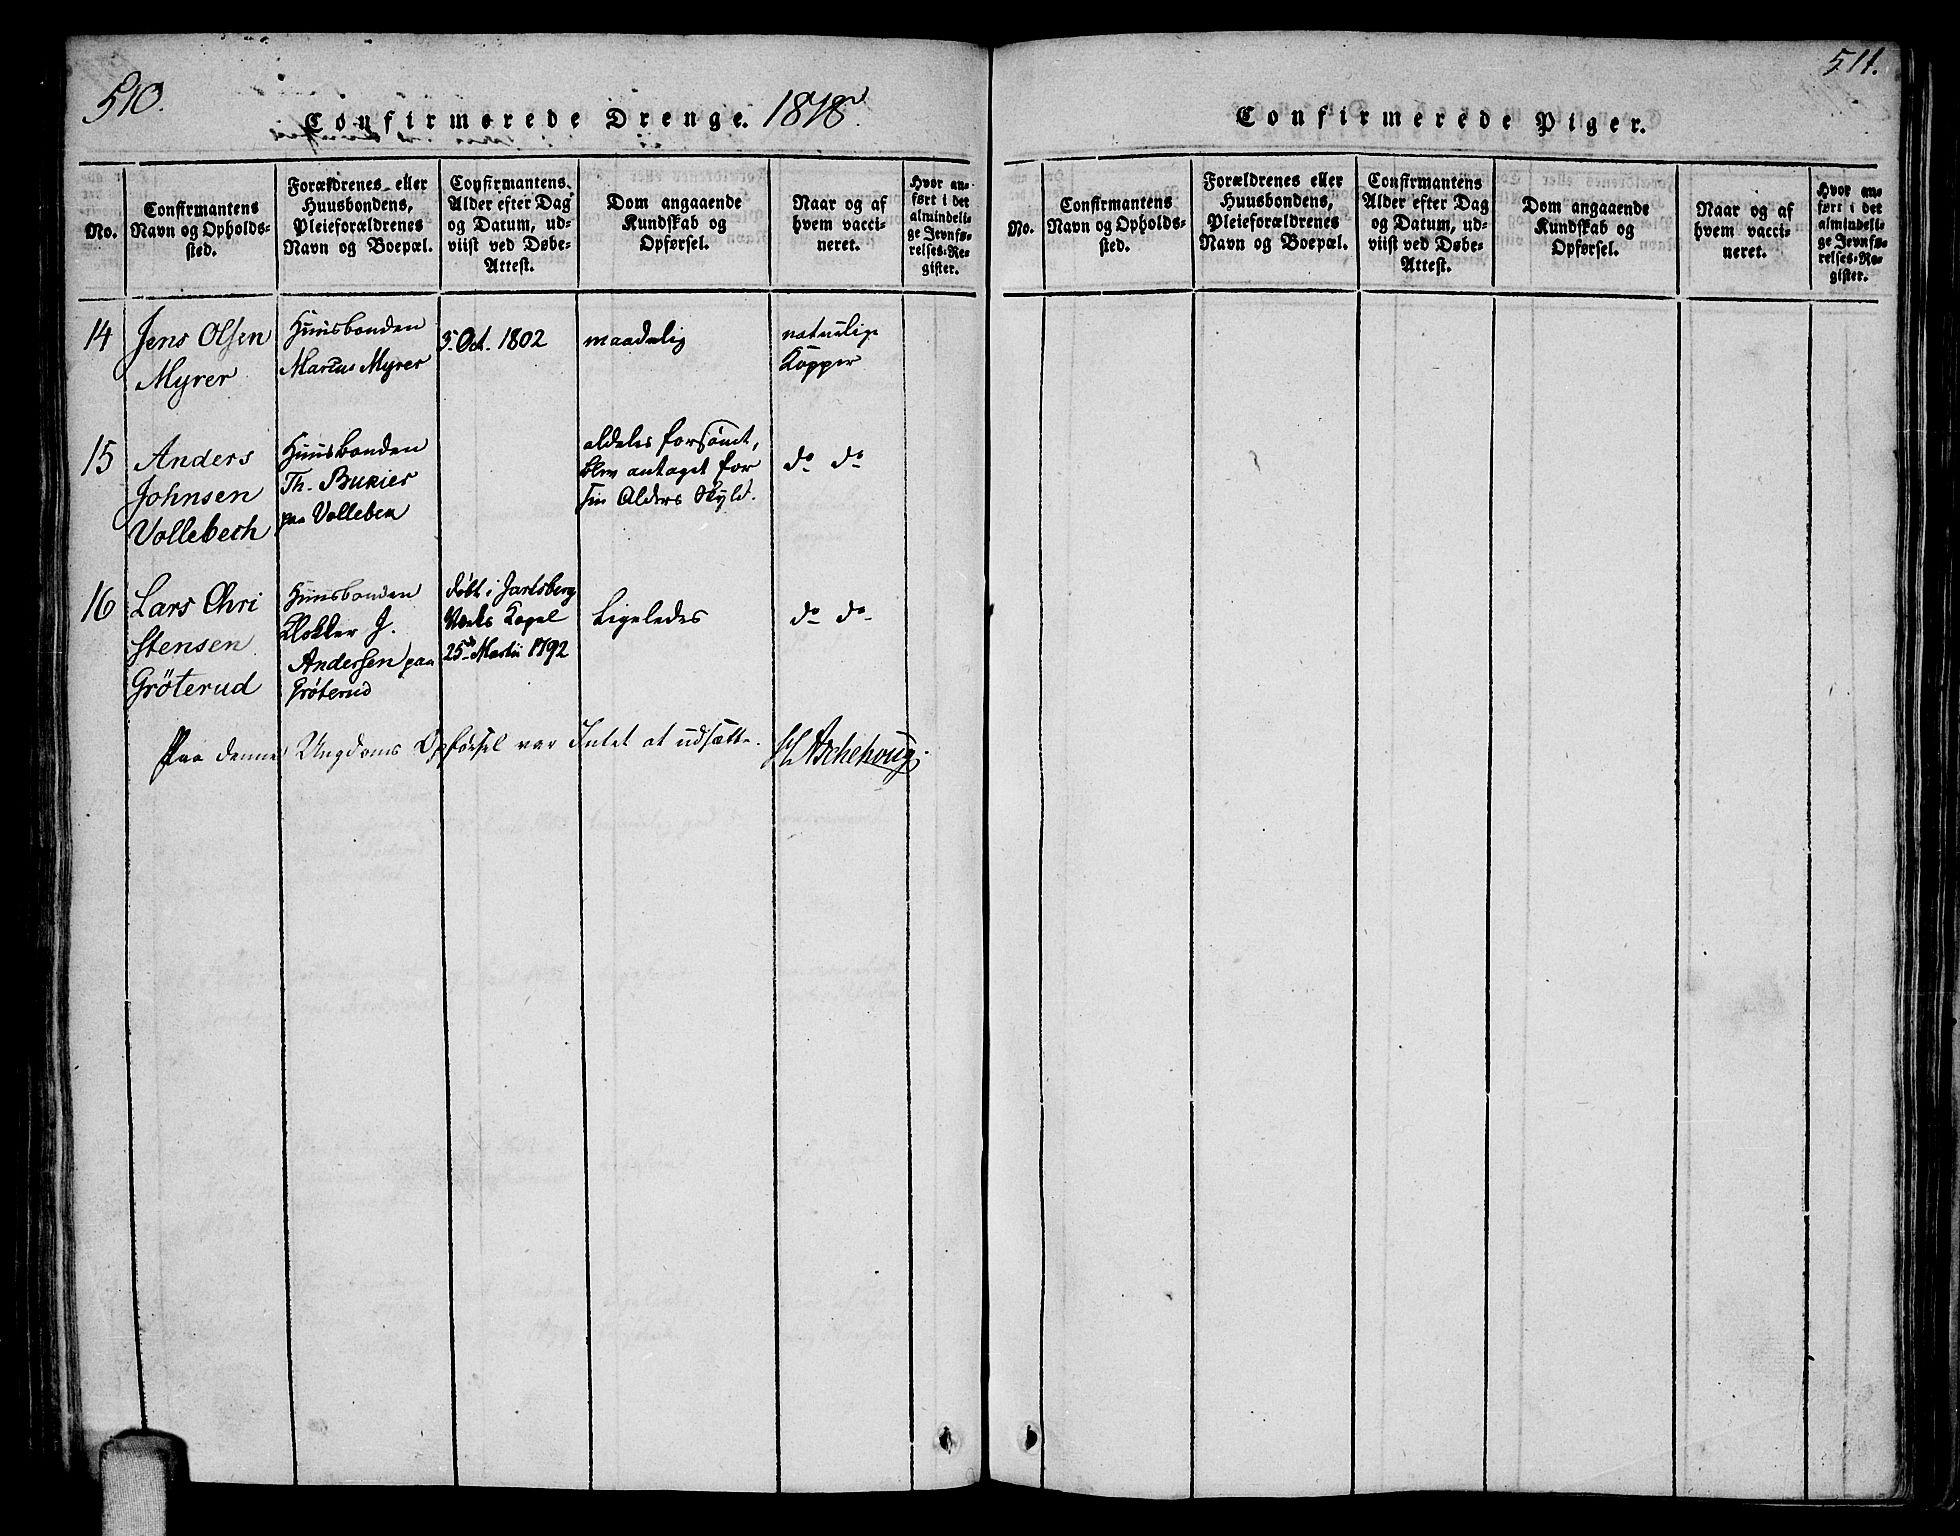 510.
Confirmerede Drenge. 1818
No.
Confirmantens
Navn og Opholds-
sted.
Forældrenes eller
Huusbondens,
Pleieforældrenes
Navn og Boepæl.
Confirmantens
Alder efter Dag
og Datum, ud-
viist ved Døbe-
Attest.
Dom angaaende
Kundskab og
Opførsel.
Naar og af
hvem vacci-
neret.
Hvor an-
ført i det
almindeli-
ge Jevnfø-
relses-Re-
gister.
14
Jens Olsen
Myrer
Huusbonden
Marcus Myrer
5. Oct. 1802
maadelig
naturlige
Kopper
15
Anders
Johnsen
Vollebech
Huusbonden
Th.
paa Vollebek
aldeles forsömt,
blev antaget for
sin Alders Skyld.
do do
16
Lars Chri
stensen
Gröterud
Huusbonden
Klokker J.
Andersen paa
Gröterud
född i Jarlsberg
Værks Kapel
25de Martii 1792
Ligeledes
do do
Paa denne Ungdoms Opførsel var Intet at udsætte. H Aschehoug.
511.
Confirmerede Piger.
No.
Confirmantens
Navn og Opholds-
sted.
Forældrenes eller
Huusbondens,
Pleieforældrenes
Navn og Boepæl.
Confirmantens
Alder efter Dag
og Datum, ud-
viist ved Døbe-
Attest.
Dom angaaende
Kundskab og
Opførsel.
Naar og af
hvem vacci-
neret.
Hvor an-
ført i det
almindeli-
ge Jevnfø-
relses-Re-
gister.